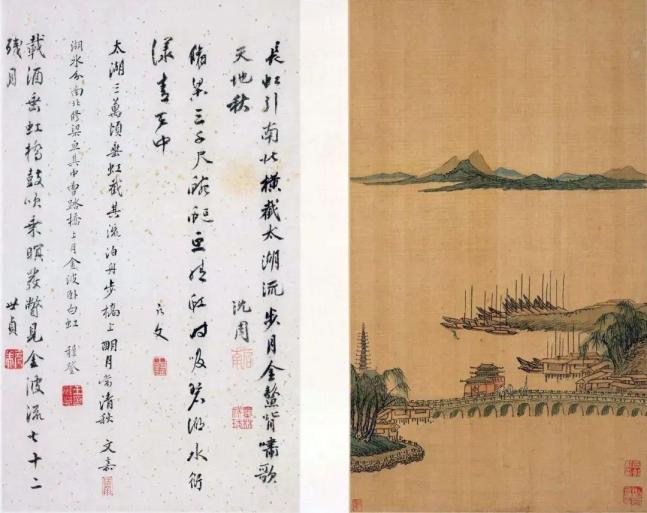 長虹引南北橫截太湖流步月金鰲背嘯歌
天地秋 沈周
脩梁三千尺蜿蜒亙晴虹時吸碧湖水衍
漾青天中
太湖三萬頃垂虹截其流泊舟步橋上明月當清秋 文嘉
湖水分南北修梁亙其中曾踏橋上月金波臥白虹 穉登
載酒垂虹橋鼓吹乘暝發瞥見金波流七十二
殘月 世貞